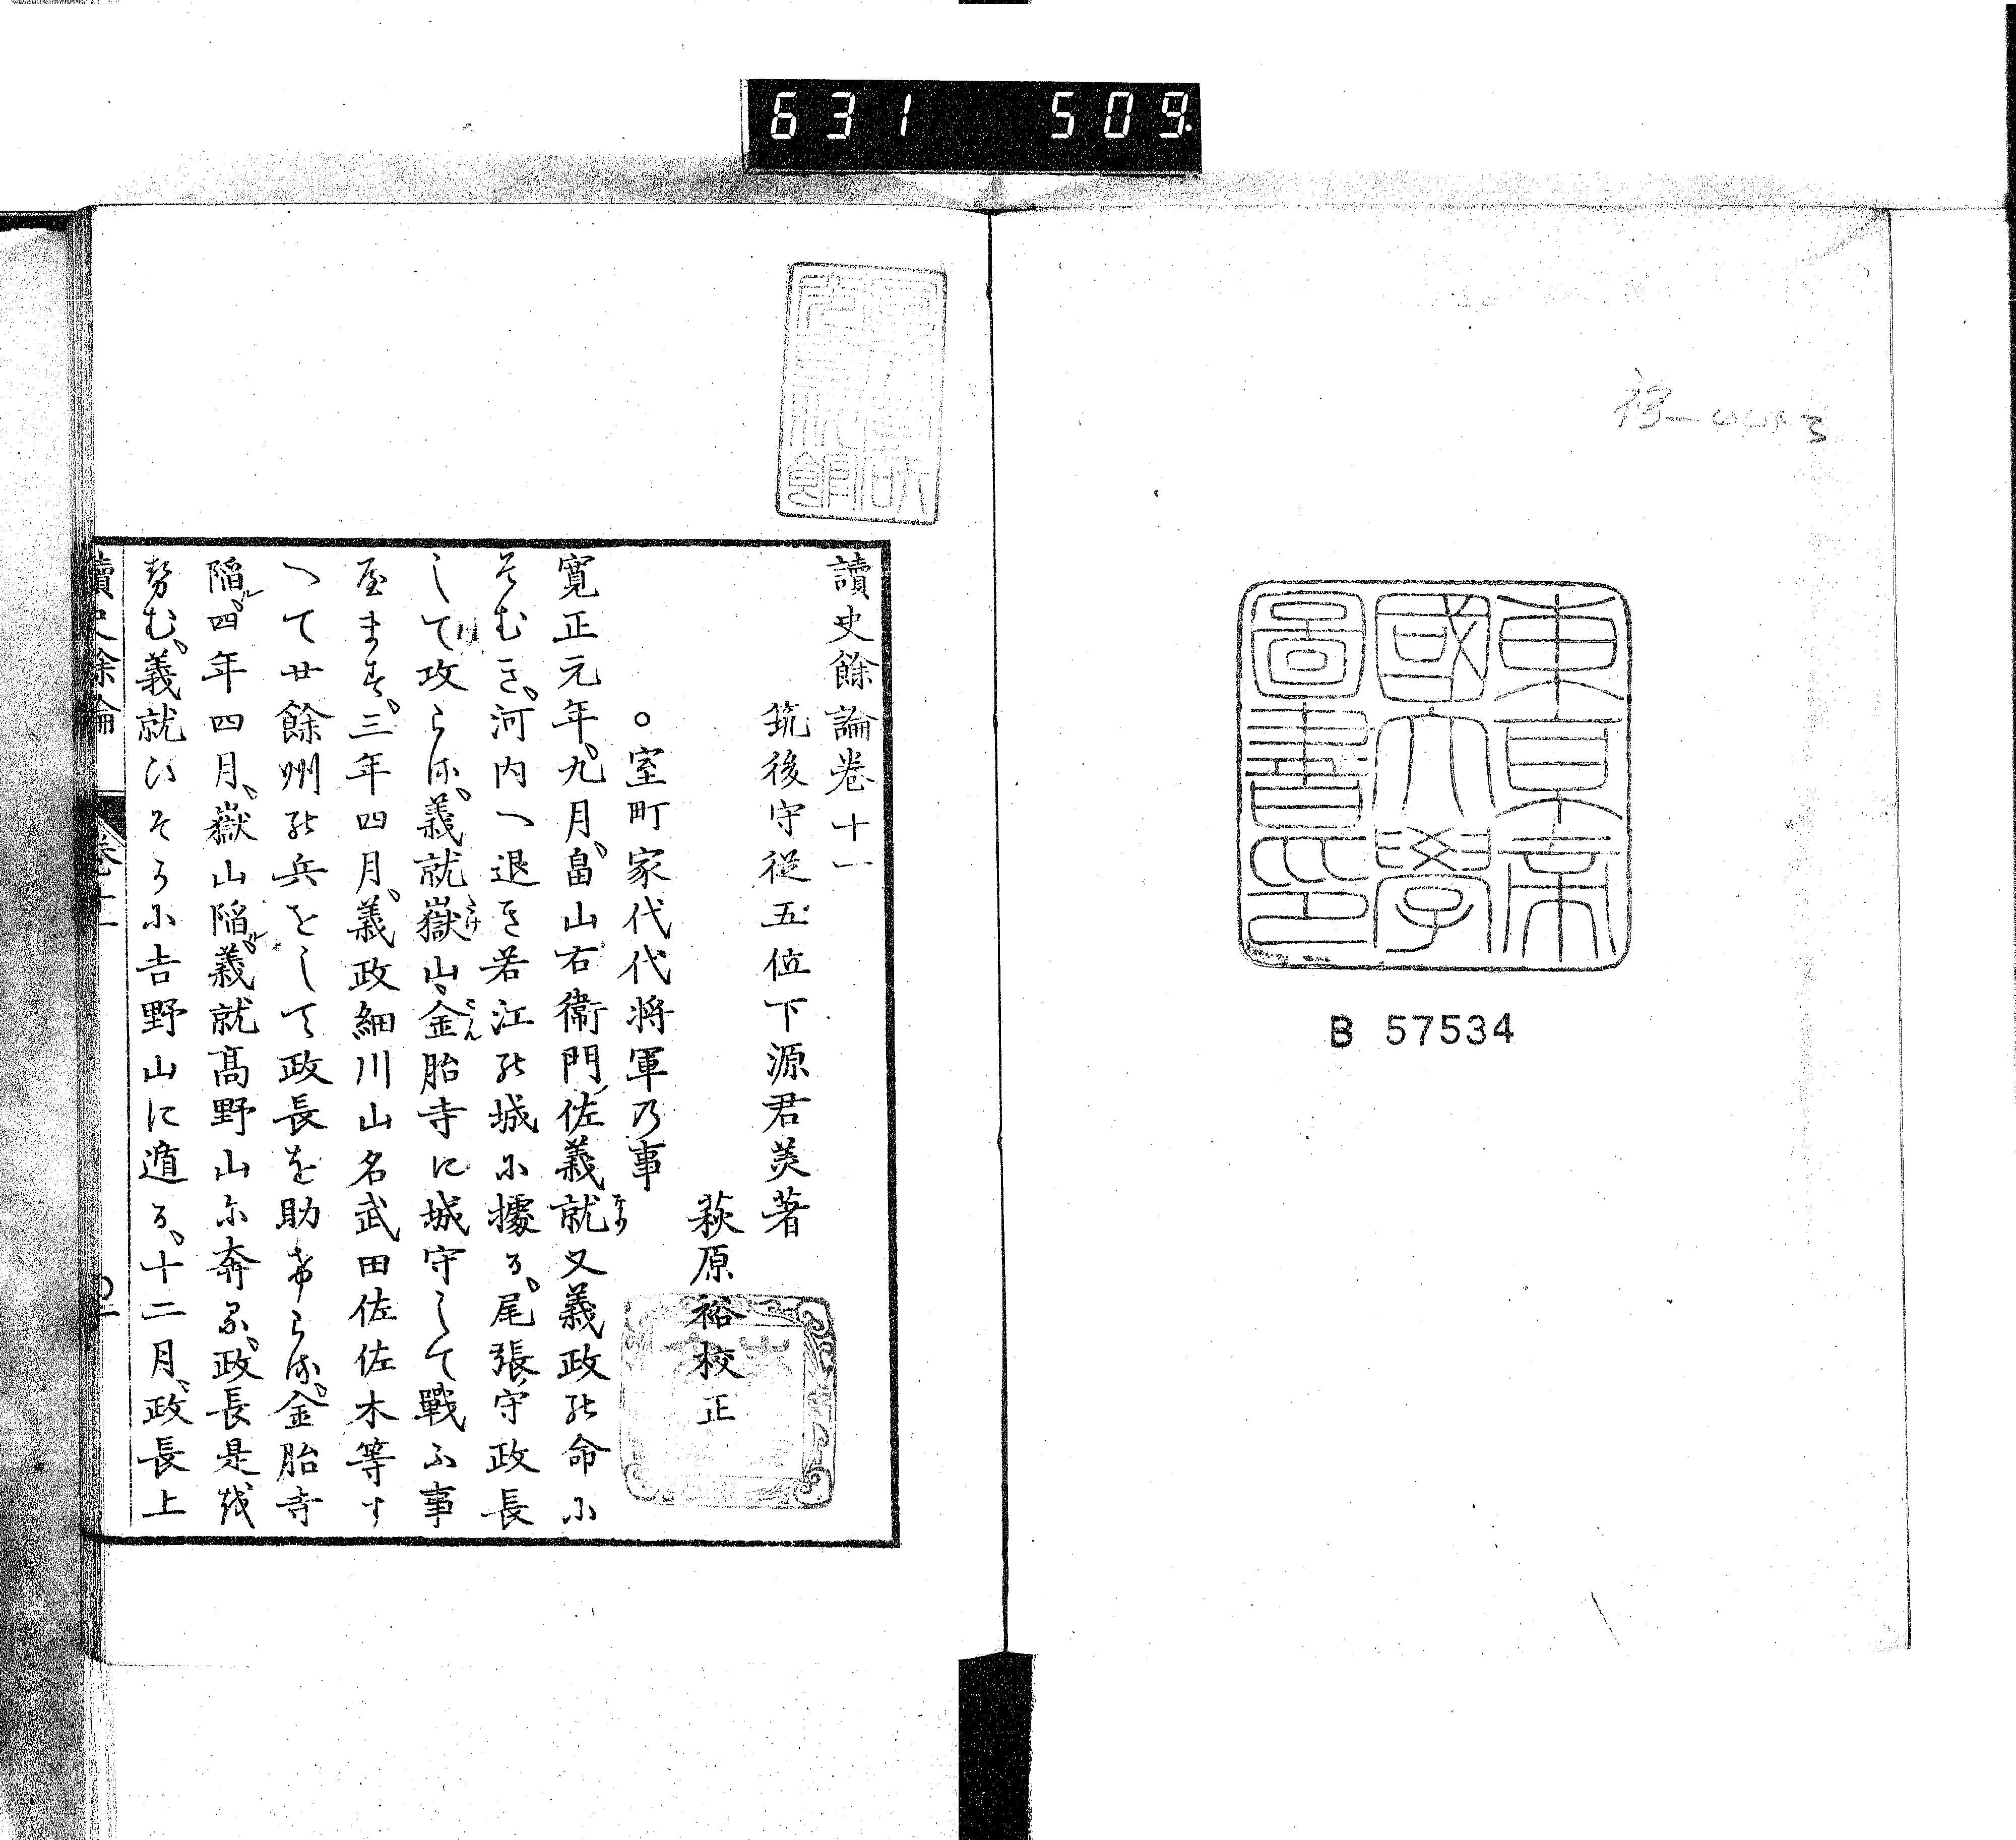 631 509
東京帝
國大學
圖書印
B 57534
讀史餘論卷十一
筑後守從五位下源君美著
萩原裕校正
○室町家代代将軍乃事
寛正元年、九月、畠山右衞門佐義就又義政の命に
そむき、河内へ退き若江の城に據る、尾張守政長
して攻らる、義就嶽山、金胎寺に城守して戰ふ事
屋まず、三年四月、義政細川山名武田佐佐木等す
べて廿餘州の兵をして政長を助けらる、金胎寺
陥、四年四月、嶽山陥、義就高野山に奔る、政長是を
努む、義就ひそかに吉野山に遁る、十二月、政長上
讀史餘論 卷十一